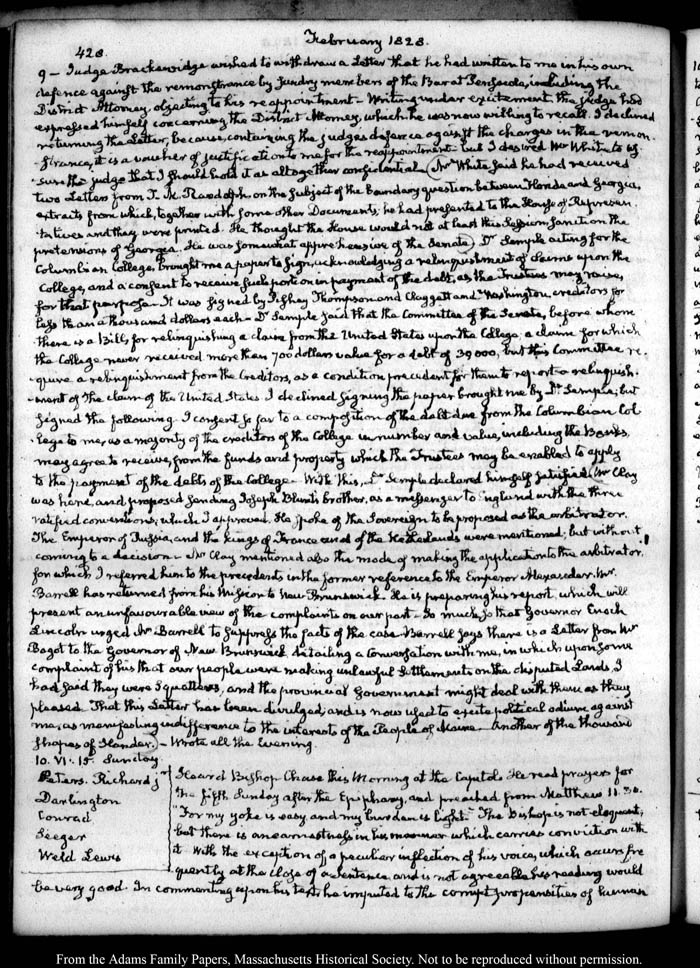 428.
February 1828.
9 – Judge Brackenridge wished to withdraw a Letter that he had written to me in his own
defence against the remonstrance by sundry members of the Bar at Pensacola, including the
District Attorney, objecting to his reappointment – Writing under excitement the judge had
expressed himself concerning the District Attorney, which he was now willing to recall. I declined
returning the Letter, because, containing the judge's defence against the charges in the remon-
strance, it is a voucher of justification to me for the reappointment but I desired Mr White to as-
sure the judge that I should hold it as altogether confidential. Mr White said he had received
two Letters from T. M. Randolph on the subject of the Boundary question between Florida and Georgia,
extracts from which, together with some other Documents, he had presented to the House of Represen-
tatives and they were printed. He thought the House would not at least this Session sanction the
pretensions of Georgia. He was somewhat apprehensive of the Senate) Dr Semple acting for the
Columbian College, brought me a paper to sign, acknowledging a relinquishment of claims upon the
College, and a consent to receive such portion in payment of the debt, as the Trustees may raise,
for that purpose – It was signed by Pishey Thompson and Claggett and Washington, creditors for
less than a thousand dollars each – Dr Semple said that the Committee of the Senate, before whom
there is a Bill, for relinquishing a claim from the United States upon the College, a claim for which
the College never received more than 700 dollars value for a debt of 30 000, but this Committee re-
quire a relinquishment from the Creditors, as a condition precedent for them to report a relinquish-
ment of the claim of the United States. I declined signing the paper brought me by Dr Semple; but
signed the following. I consent so far to a composition of the debt due from the Columbian Col-
lege to me, as a majority of the creditors of the College in number and value, including the Banks,
may agree to receive, from the funds and property which the Trustees may be enabled to apply
to the payment of the debts of the College – With this, Dr Semple declared himself satisfied. Mr Clay
was here, and proposed sending Joseph Blunt's brother, as a messenger to England with the three
ratified conventions, which I approved. He spoke of the Sovereign to be proposed as the arbitrator.
The Emperor of Russia, and the kings of France and of the Netherlands were mentioned; but without
coming to a decision – Mr Clay mentioned also the mode of making the application to the arbitrator,
for which I referred him to the precedents in the former reference to the Emperor Alexander. Mr
Barrell has returned from his Mission to New Brunswick. He is preparing his report, which will
present an unfavourable view of the complaints on our part – So much so that Governor Enoch
Lincoln urged Mr Barrell to suppress the facts of the case – Barrell says there is a Letter from Mr
Bagot to the Governor of New Brunswick detailing a Conversation with me, in which upon some
complaint of his that our people were making unlawful Settlements on the disputed Lands, I
had said they were Squatters, and the provincial Government might deal with them as they
pleased. That this Letter has been divulged, and is now used to excite political odium against
me, as manifesting indifference to the interests of the People of Maine – Another of the thousand
shapes of slander) – Wrote all the Evening.
10. VI. 15. Sunday
Peters. Richard jr
Darlington
Conrad
Seeger
Weld Lewis
Heard Bishop Chase this Morning at the Capitol. He read prayers for
the fifth Sunday after the Epiphany, and preached from Matthew 11. 30.
"For my yoke is easy and my burden is light." The Bishop is not eloquent,
but there is an earnestness in his manner which carries conviction with
it – With the exception of a peculiar inflection of his voice, which occurs fre-
quently at the close of a sentence and is not agreeable his reading would
be very good. In commenting upon his text, he imputed to the corrupt propensities of human
From the Adams Family Papers, Massachusetts Historical Society. Not to be reproduced without permission.